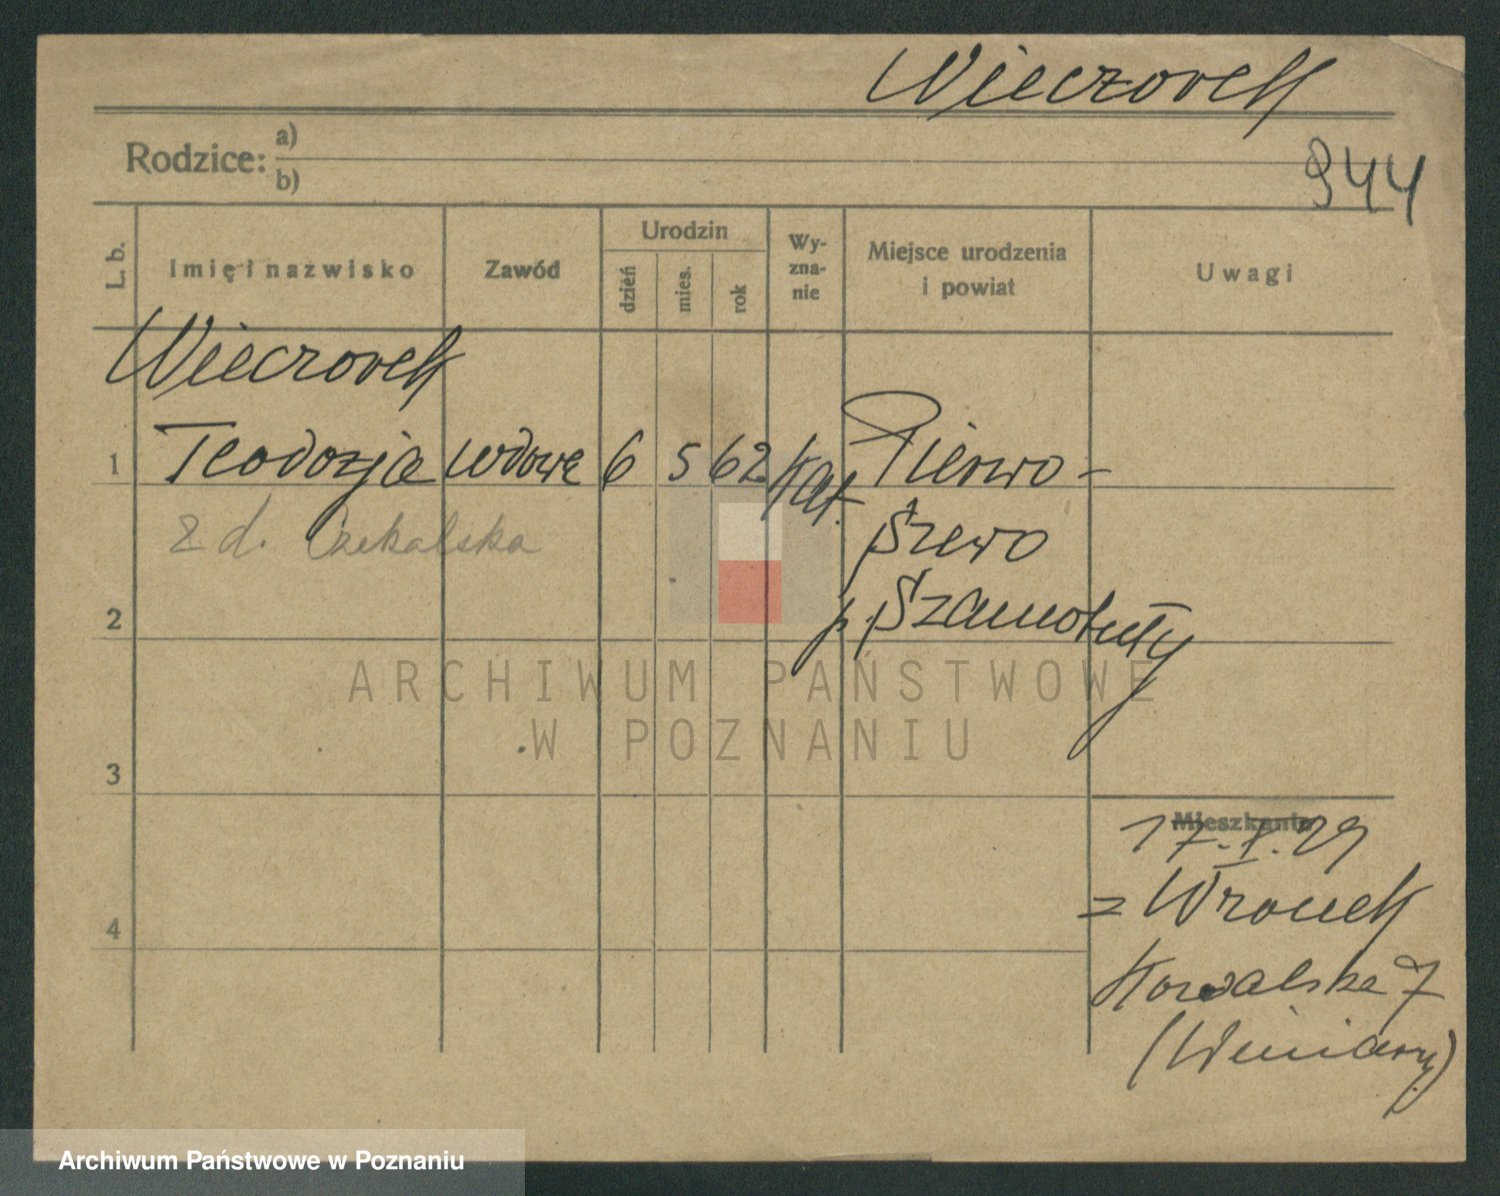 Wieczorek
944
Rodzice: a)
b)
L. b.
Imię i nazwisko
Zawód
Urodzin
dzień
mies.
rok
Wy-
zna-
nie
Miejsce urodzenia
i powiat
Uwagi
Wieczorek
1 Teodozja wdowa 6 5 62 kat. Pierwo-
szewo
z d. Czekalska
2
p. Szamotuły
ARCHIWUM PAŃSTWOWE
W POZNANIU
3
Mieszkanie
17.I.29
z Wronek
4
Kowalska 7
(Winiary)
Archiwum Państwowe w Poznaniu